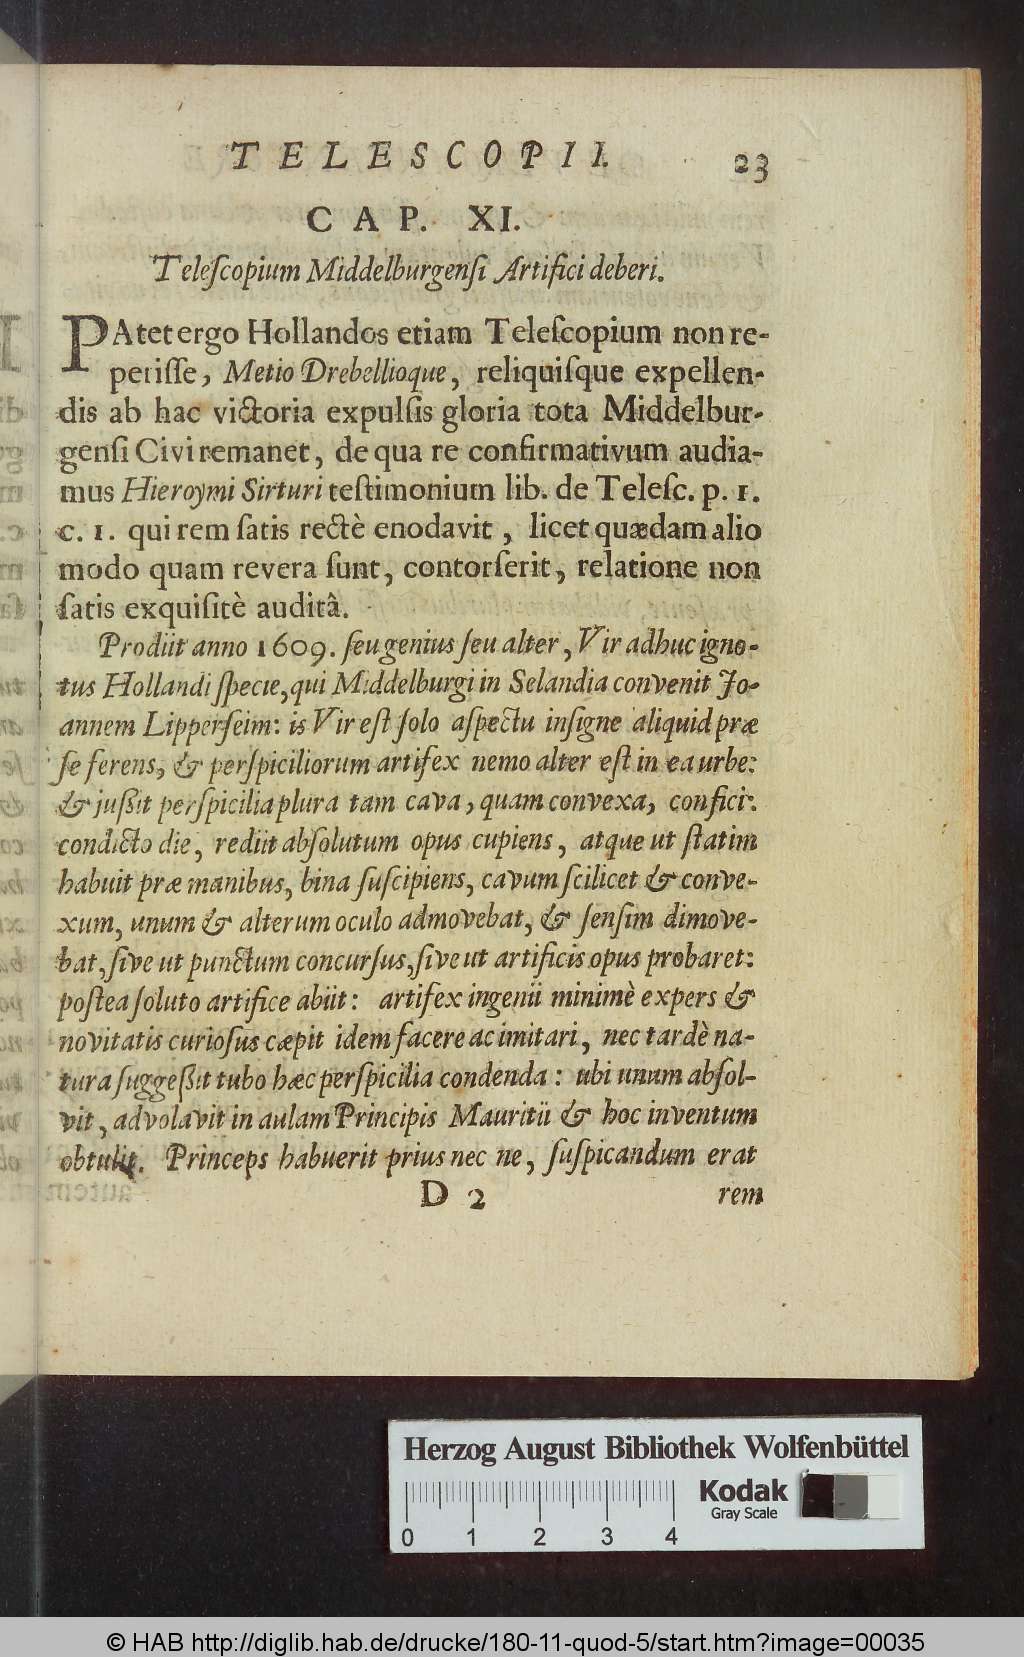 TELESCOPII. 23
CAP. XI.
Teleſcopium Middelburgenſi Artifici deberi.
PAtet ergo Hollandos etiam Teleſcopium non re-
periſſe, Metio Drebellioque, reliquiſque expellen-
dis ab hac victoria expulſis gloria tota Middelbur-
genſi Civi remanet, de qua re confirmativum audia-
mus Hieroymi Sirturi teſtimonium lib. de Teleſc. p. 1.
c. 1. qui rem ſatis rectè enodavit, licet quædam alio
modo quam revera ſunt, contorſerit, relatione non
ſatis exquiſitè auditâ.
Prodiit anno 1609. ſeu genius ſeu alter, Vir adhuc igno-
tus Hollandi ſpecie, qui Middelburgi in Selandia convenit Jo-
annem Lipperſeim: is Vir eſt ſolo aſpectu inſigne aliquid præ
ſe ferens, & perſpiciliorum artifex nemo alter eſt in ea urbe:
& jußit perſpicilia plura tam cava, quam convexa, confici.
condicto die, rediit abſolutum opus cupiens, atque ut ſtatim
habuit præ manibus, bina ſuſcipiens, cavum ſcilicet & conve-
xum, unum & alterum oculo admovebat, & ſenſim dimove-
bat, ſive ut punctum concurſus, ſive ut artificis opus probaret:
poſtea ſoluto artifice abiit: artifex ingenii minimè expers &
novitatis curioſus cæpit idem facere ac imitari, nec tardè na-
tura ſuggeßit tubo hæc perſpicilia condenda: ubi unum abſol-
vit, advolavit in aulam Principis Mauritii & hoc inventum
obtulit. Princeps habuerit prius nec ne, ſuſpicandum erat
D 2 rem
Herzog August Bibliothek Wolfenbüttel
Kodak
Gray Scale
0 1 2 3 4
© HAB http://diglib.hab.de/drucke/180-11-quod-5/start.htm?image=00035